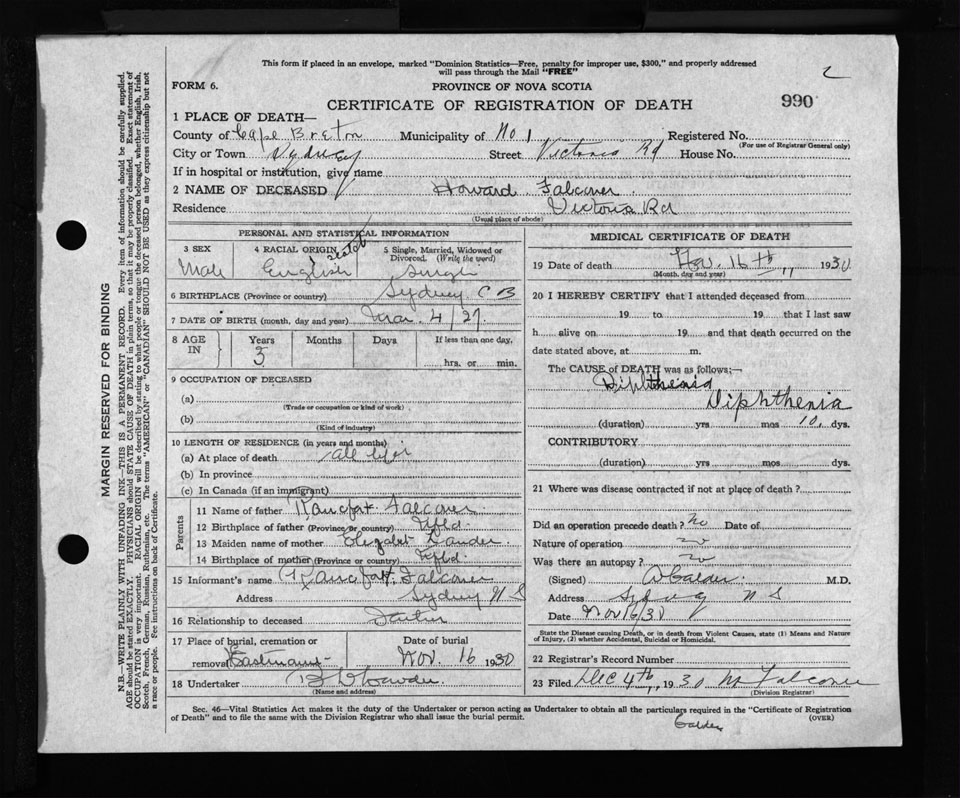 This form if placed in an envelope, marked "Dominion Statistics—Free, penalty for improper use, $300," and properly addressed
will pass through the Mail "FREE"
2
FORM 6.
PROVINCE OF NOVA SCOTIA
990
CERTIFICATE OF REGISTRATION OF DEATH
1 PLACE OF DEATH—
County of Cape Breton Municipality of No 1 Registered No.
(For use of Registrar General only)
City or Town Sydney Street Victoria Rd House No.
If in hospital or institution, give name
2 NAME OF DECEASED Howard Falconer
Residence Victoria Rd
(Usual place of abode)
PERSONAL AND STATISTICAL INFORMATION
3 SEX 4 RACIAL ORIGIN 5 Single, Married, Widowed or Divorced. (Write the word)
Male English Scotch Single
6 BIRTHPLACE (Province or country) Sydney C B
7 DATE OF BIRTH (month, day and year) Mar. 4/27
8 AGE IN Years Months Days If less than one day,
3 hrs. or min.
9 OCCUPATION OF DECEASED
(a)
(Trade or occupation or kind of work)
(b)
(Kind of industry)
10 LENGTH OF RESIDENCE (in years and months)
(a) At place of death all life
(b) In province
(c) In Canada (if an immigrant)
Parents
11 Name of father Falconer
12 Birthplace of father (Province or country) Nfld.
13 Maiden name of mother
14 Birthplace of mother (Province or country) Nfld
15 Informant's name Falconer
Address Sydney N S
16 Relationship to deceased Father
17 Place of burial, cremation or removal Date of burial
Nov. 16 1930
18 Undertaker
(Name and address)
MEDICAL CERTIFICATE OF DEATH
19 Date of death Nov. 16th 1930
(Month, day and year)
20 I HEREBY CERTIFY that I attended deceased from
19 to 19 that I last saw
h alive on 19 and that death occurred on the
date stated above, at m.
The CAUSE of DEATH was as follows;—
Diphtheria
Diphtheria
(duration) yrs mos 10. dys.
CONTRIBUTORY
(duration) yrs mos dys.
21 Where was disease contracted if not at place of death?
Did an operation precede death? no Date of
Nature of operation no
Was there an autopsy? no
(Signed) Calder M.D.
Address Sydney N S
Date Nov 16/30
State the Disease causing Death, or in death from Violent Causes, state (1) Means and Nature
of Injury, (2) whether Accidental, Suicidal or Homicidal.
22 Registrar's Record Number
23 Filed Dec 4th 1930 M Falconer
(Division Registrar)
Sec. 46—Vital Statistics Act makes it the duty of the Undertaker or person acting as Undertaker to obtain all the particulars required in the "Certificate of Registration
of Death" and to file the same with the Division Registrar who shall issue the burial permit.
(OVER)
Calder
MARGIN RESERVED FOR BINDING
N.B.—WRITE PLAINLY WITH UNFADING INK—THIS IS A PERMANENT RECORD. Every item of information should be carefully supplied.
AGE should be stated EXACTLY. PHYSICIANS should STATE CAUSE OF DEATH in plain terms, so that it may be properly classified. Exact statement of
OCCUPATION is very important. RACIAL ORIGIN will be described by stating to what people or tongue the deceased person belonged, whether English, Irish,
Scotch, French, German, Russian, Ruthenian, etc. The terms "AMERICAN" or "CANADIAN" SHOULD NOT BE USED as they express citizenship but not
a race or people. See instructions on back of Certificate.